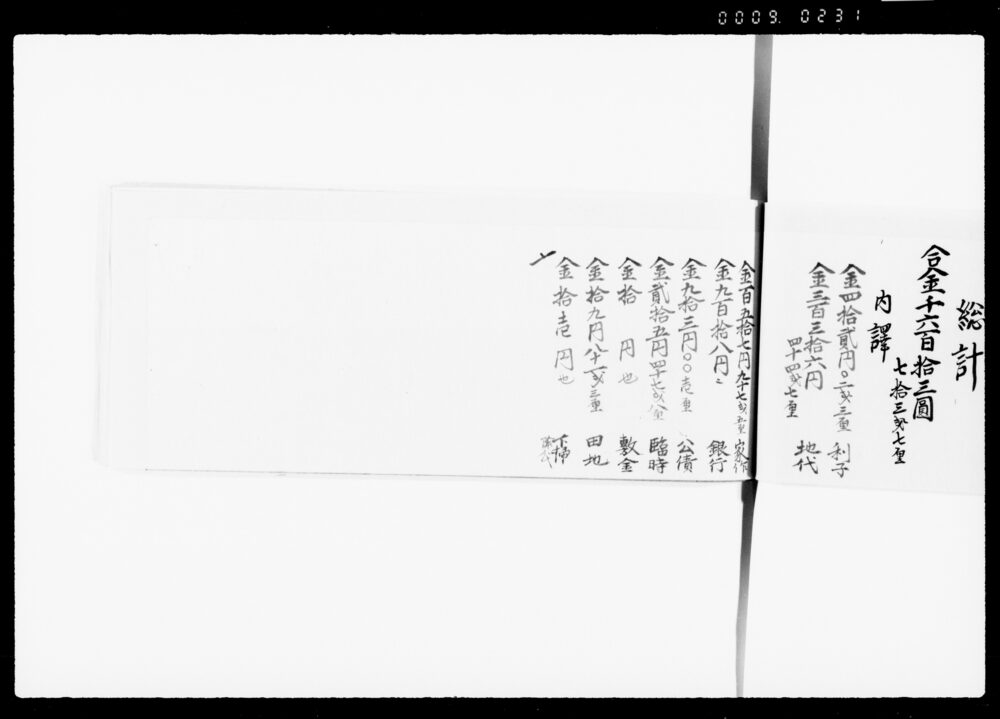 0009. 0231
総計
合金千六百拾三圓
七拾三戔七厘
内譯
金四拾貳円〇二戔三厘 利子
金三百三拾六円
四十四戔七厘 地代
金百五拾七円九十七戔五厘 家作
金九百拾八円 銀行
金九拾三円〇〇壱厘 公債
金貳拾五円四十七戔八厘 臨時
金拾円也 敷金
金拾九円八十一戔三厘 田地
金拾壱円也 下掃